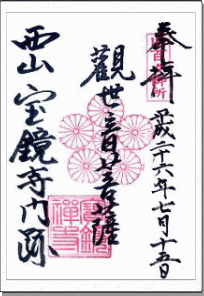 奉拝
平成二十六年七月十五日
觀世音菩薩
西山宝鏡寺門跡